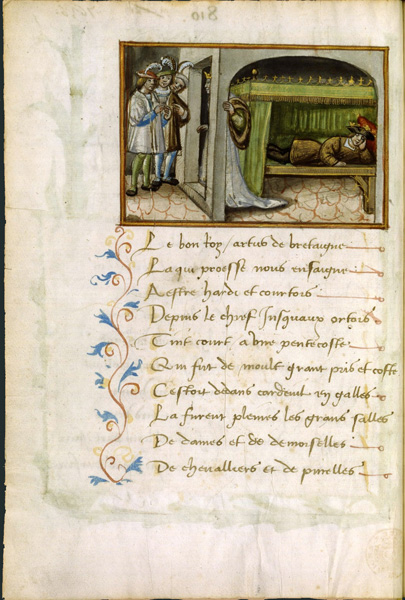 Le bon Roy / artus de bretaigne
La qui proesse nous ensaigne
A estre hardi et courtois
Depuis le chief Jusquaux ortoys
Tint court a une pentecoste
Qui fut de moult grant pris et coste
Cestoit dedans cardeul en galles
La furent pleines les grans salles
De dames et de demoiselles
De chevalliers et de pucelles